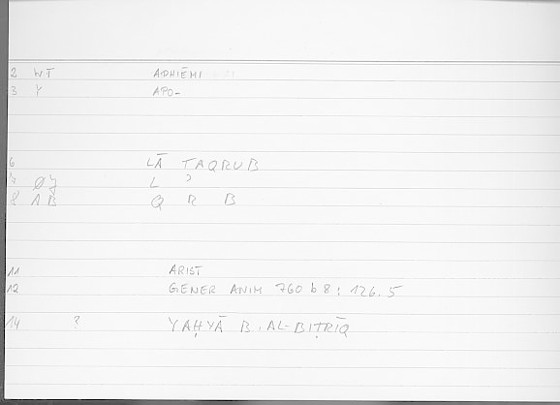 2 WT APHIĒMI
3 Y APO-
6 LĀ TAQRUB
7 ØJ L ʾ
8 AB Q R B
11 ARIST
12 GENER ANIM 760 b 8 : 126.5
14 ? YAḤYĀ B. AL-BIṬRĪQ